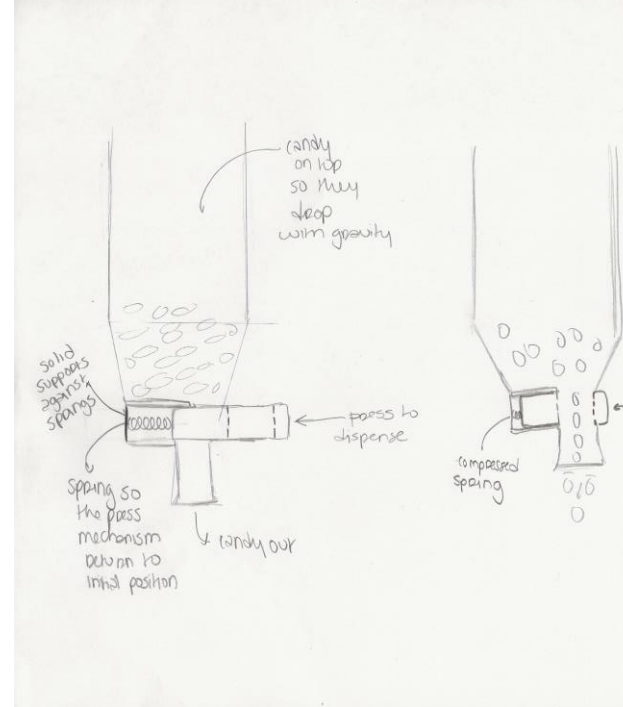 candy
on top
so they
drop
with gravity
solid
supports
against
springs
press to
dispense
spring so
the press
mechanism
return to
initial position
candy out
compressed
spring